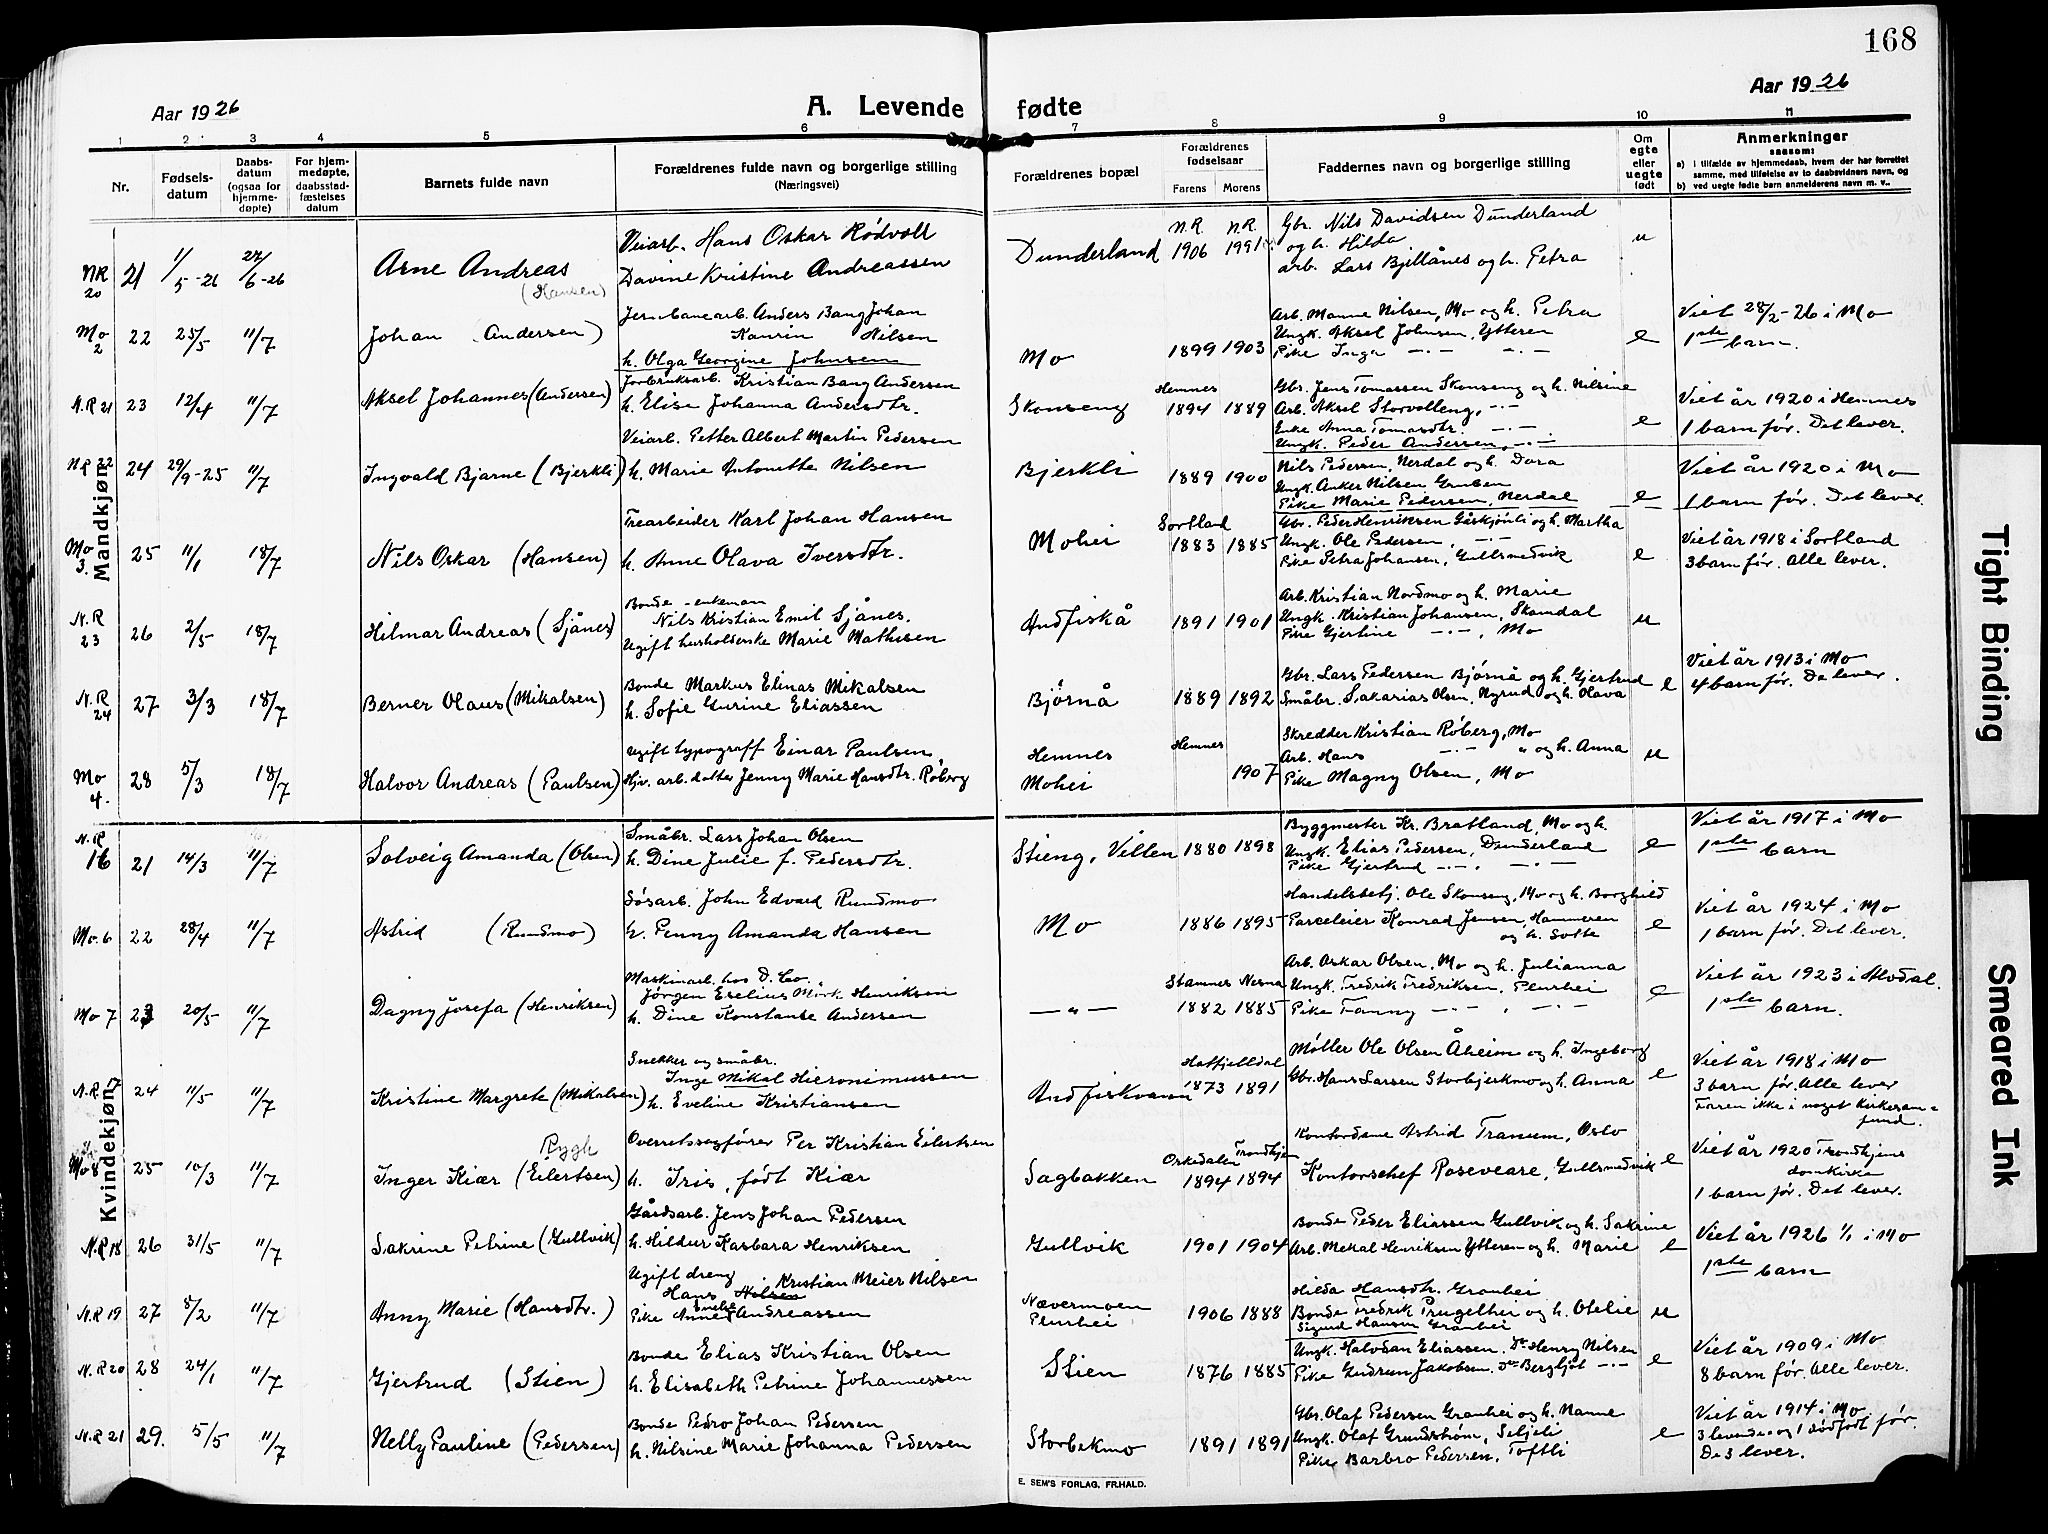 168
Aar 1926
A. Levende fødte
Aar 1926
1 2 3 4 5 6 7 8 9 10 11
Nr.
Fødsels-
datum
Daabs-
datum
(ogsaa for
hjemme-
døpte)
For hjem-
medøpte,
daabsstad-
fæstelses
datum
Barnets fulde navn
Forældrenes fulde navn og borgerlige stilling
(Næringsvei)
Forældrenes bopæl
Forældrenes
fødselsaar
Farens Morens
Faddernes navn og borgerlige stilling
Om
egte
eller
uegte
født
Anmerkninger
saasom:
a) i tilfælde av hjemmedaab, hvem der har forrettet
samme, med tilføielse av to daabsvidners navn, og
b) ved uegte fødte barn anmelderens navn m. v..
Mandkjøn
N.R. 20 21 1/5-26 27/6-26 Arne Andreas
(Hansen)
Veiarb. Hans Oskar Rödvoll
Davine Kristine Andreassen
Dunderland
N.R. N.R.
1906
Gbr. Nils Davidsen Dunderland
og h. Hilda
arb. Lars Bjellånes og h. Petra
u
Mo 2 22 25/5 11/7 Johan (Andersen)
Jernbanearb. Anders Bang Johan
Kaurin Nilsen
h. Olga Georgine Johnsen
Mo
1899 1903
Arb. Manne Nilsen, Mo og h. Petra
Ungk. Aksel Johnsen, Ytteren
Pike Inga -"- -"-
e
Viet 28/2-26 i Mo
1ste barn.
N.R 21 23 12/4 11/7 Aksel Johannes (Andersen)
Jordbruksarb. Kristian Bang Andersen
h. Elise Johanna Andersdtr.
Skonseng
Hemnes
1894 1889
Gbr. Jens Tomassen Skonseng og h. Nilsine
Arb. Aksel Storvolleng, -"-
Enke Anna Tomasdtr. -"-
Ungk. Peder Andersen, -"-
e
Viet år 1920 i Hemnes
1 barn før. Det lever.
N R 22 24 29/9-25 11/7 Ingvald Bjarne (Bjerkli)
Veiarb. Petter Albert Martin Pedersen
h. Marie Antonette Nilsen
Bjerkli
1889 1900
Nils Pedersen, Nerdal og h. Dora
Ungk. Anker Nilsen Gruben
Pike Marie Pedersen, Nerdal
e
Viet år 1920 i Mo
1 barn før. Det lever.
Mo 3. 25 11/1 18/7 Nils Oskar (Hansen)
Trearbeider Karl Johan Hansen
h. Anne Olava Iversdtr.
Mohei
Sortland
1883 1885
Gbr. Peder Henriksen Gåskjønli og h. Martha
Ungk. Ole Pedersen, -"-
Pike Petra Johansen, Gullsmedvik
e
Viet år 1918 i Sortland
3 barn før. Alle lever.
N.R 23 26 2/5 18/7 Hilmar Andreas (Sjånes)
Bonde - enkeman
Nils Kristian Emil Sjånes.
Ugift husholderske Marie Mathisen
Andfiskå
1891 1901
Arb. Kristian Nordmo og h. Marie
Ungk. Kristian Johansen, Skamdal
Pike Gjertine -"-, Mo
u
N.R 24 27 3/3 18/7 Berner Olaus (Mikalsen)
Bonde Markus Elinas Mikalsen
h. Sofie Gurine Eliassen
Björnå
1889 1892
Gbr. Lars Pedersen Bjørnå og h. Gjertrud
Småbr. Sakarias Olsen, Nyrud og h. Olava
e
Viet år 1913 i Mo
4 barn før. De lever.
Mo 4. 28 5/3 18/7 Halvor Andreas (Paulsen)
Ugift typograff Einar Paulsen
Hjv. arb. datter Jenny Marie Hansdtr. Røberg
Hemnes
Mohei
Hemnes
1907
Skredder Kristian Røberg, Mo
Arb. Hans -"- " og h. Anna
Pike Magny Olsen, Mo
u
Kvindekjøn
N.R 16 21 14/3 11/7 Solveig Amanda (Olsen)
Småbr. Lars Johan Olsen
h. Dine Julie f. Pedersdtr.
Stieng, Villen
1880 1898
Byggmester Kr. Bratland, Mo og h.
Ungk. Elias Pedersen, Dunderland
Pike Gjertrud -"- , -"-
e
Viet år 1917 i Mo
1ste barn
Mo. 6 22 28/4 11/7 Astrid (Rundmo)
Søsarb. John Edvard Rundmo
h. Penny Amanda Hansen
Mo
1886 1895
Handelsbetj. Ole Skonseng, Mo og h. Borghild
Parceleier Konrad Jensen, Hammeren
og h. Lotte
e
Viet år 1924 i Mo
1 barn før. Det lever.
Mo 7 23 20/5 11/7 Dagny Josefa (Henriksen)
Maskinarb. hos D. Co.
Jörgen Eselius Mörk Henriksen
h. Dine Konstanse Andersen
-"-
Stamnes Nesna
1882 1885
Arb. Oskar Olsen, Mo og h. Julianna
Ungk. Fredrik Fredriksen, Plurhei
Pike Fanny -"- , -"-
e
Viet år 1923 i
1ste barn.
N.R. 17 24 11/5 11/7 Kristine Margrete (Mikalsen)
Snekker og småbr.
Inge Mikal Hieronimussen
h. Eveline Kristiansen
Andfiskvann
Hatfjelldal
1873 1891
Møller Ole Olsen Åheim og h. Ingeborg
Gbr. Hans Larsen Storbjerkmo og h. Anna
e
Viet år 1918 i Mo
3 barn før. Alle lever
Faren ikke i noget kirkesam-
fund.
Mo 8 25 10/3 11/7 Inger Kiær (Eilertsen)
Rygh
Overretssagfører Per Kristian Eilertsen
h. Iris, født Kiær
Sagbakken
Orkedalen Trondhjem
1894 1894
Kontordame Astrid Tranum, Oslo
Kontorschef Roseveare, Gullsmedvik
e
Viet år 1920 Trondhjems
domkirke
1 barn før. Det lever.
N.R 18 26 31/5 11/7 Sakrine Petrine (Gullvik)
Gårdsarb. Jens Johan Pedersen
h. Hildur Kasbara Henriksen
Gullvik
1901 1904
Bonde Peder Eliassen Gullvik og h. Sakrine
Arb. Mekal Henriksen Ytteren og h. Marie
e
Viet år 1926 1/1 i Mo
1ste barn
N.R 19 27 8/2 11/7 Anny Marie (Hansdtr.)
Ugift dreng Kristian Meier Nilsen
Hans Nilsen
Pike Andreassen
Nævermoen
Plurhei
1906 1888
Hilda Hansdtr. Granhei
Bonde Fredrik Prugelhei og h. Otelie
Sigurd Hansen Granhei
u
N.R 20 28 24/1 11/7 Gjertrud (Stien)
Bonde Elias Kristian Olsen
h. Elisabeth Petrine Johannessen
Stien
1876 1885
Ungk. Halvdan Eliassen. Do Henry Nilsen
Pike Gudrun Jakobsen. Do Bergljot -"-
e
Viet år 1909 i Mo
8 barn før. Alle lever.
N.R 21 29. 5/5 11/7 Nelly Pauline (Pedersen)
Bonde Pedro Johan Pedersen
h. Nilsine Marie Johanna Pedersen
Storbekmo
1891 1891
Gbr. Olaf Pedersen Granhei og h. Nanne
Ungk. Olaf Grundstrøm, Seljeli
Pike Barbro Pedersen, Toftli
e
Viet år 1914 i Mo
3 levende og 1 dödfödt før.
De 3 lever.
E. SEM'S FORLAG, FR.HALD.
Tight Binding
Smeared Ink